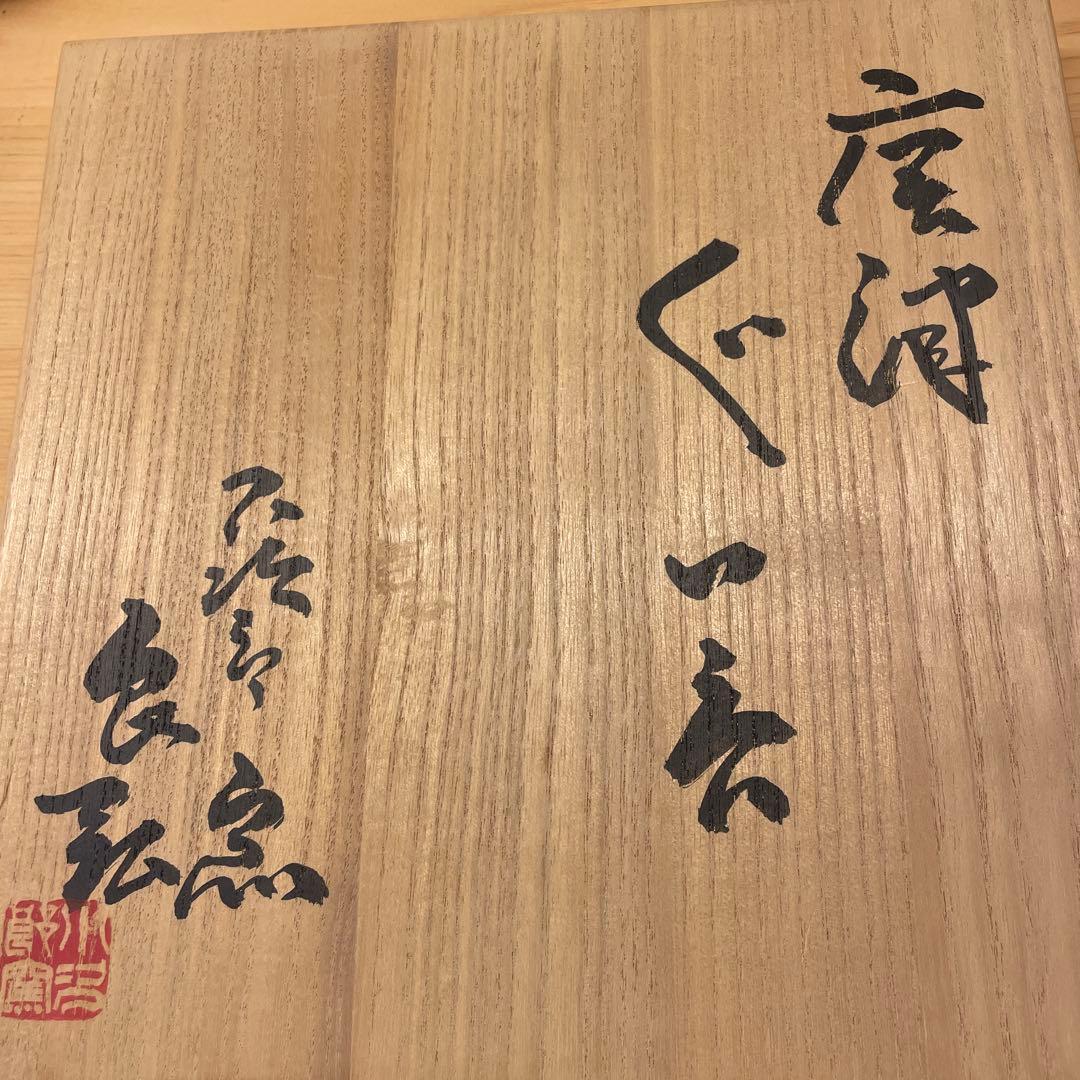 唐津
ぐい呑
次郎窯
良弘